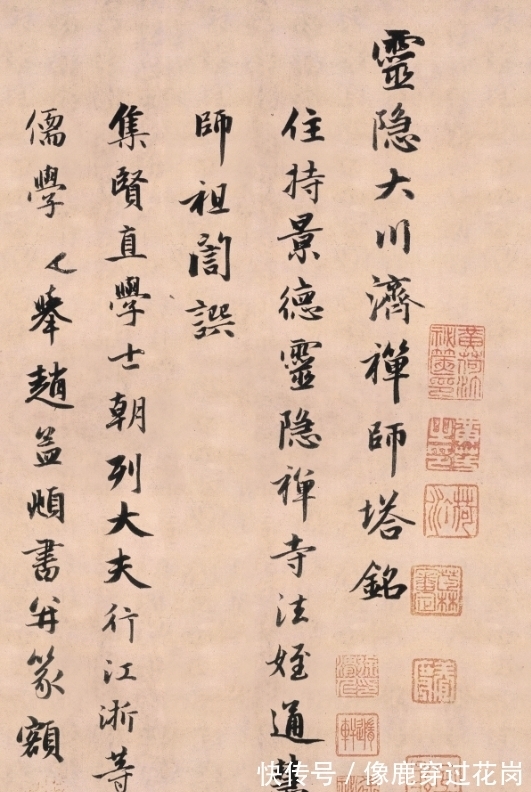 靈隐大川濟禪師塔銘
住持景德靈隐禪寺法姪通
師祖誾譔
集賢直學士朝列大夫行江浙等
儒學舉趙孟頫書并篆額
快传号 / 像鹿穿过花岗